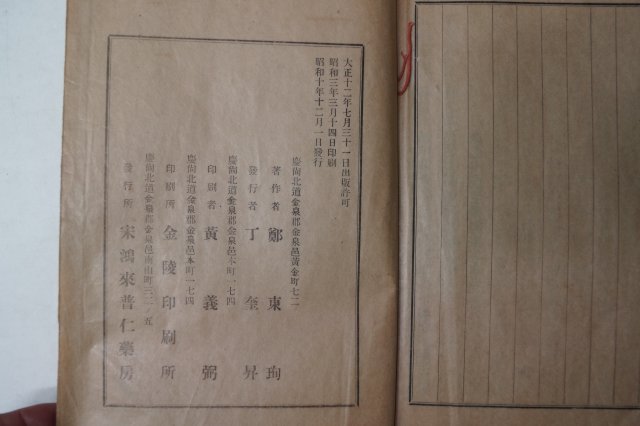 大正十二年七月三十一日出版許可
昭和三年三月十四日印刷
昭和十年十二月一日發行
慶尙北道金泉郡金泉邑黃金町七二
著作者 鄭東珣
發行者 丁奎昇
慶尙北道金泉郡金泉邑本町一七四
印刷者 黃義弼
慶尙北道金泉郡金泉邑本町一七四
印刷所 金陵印刷所
慶尙北道金泉郡金泉邑南山町三二 五
發行所 宋鴻來普仁藥房